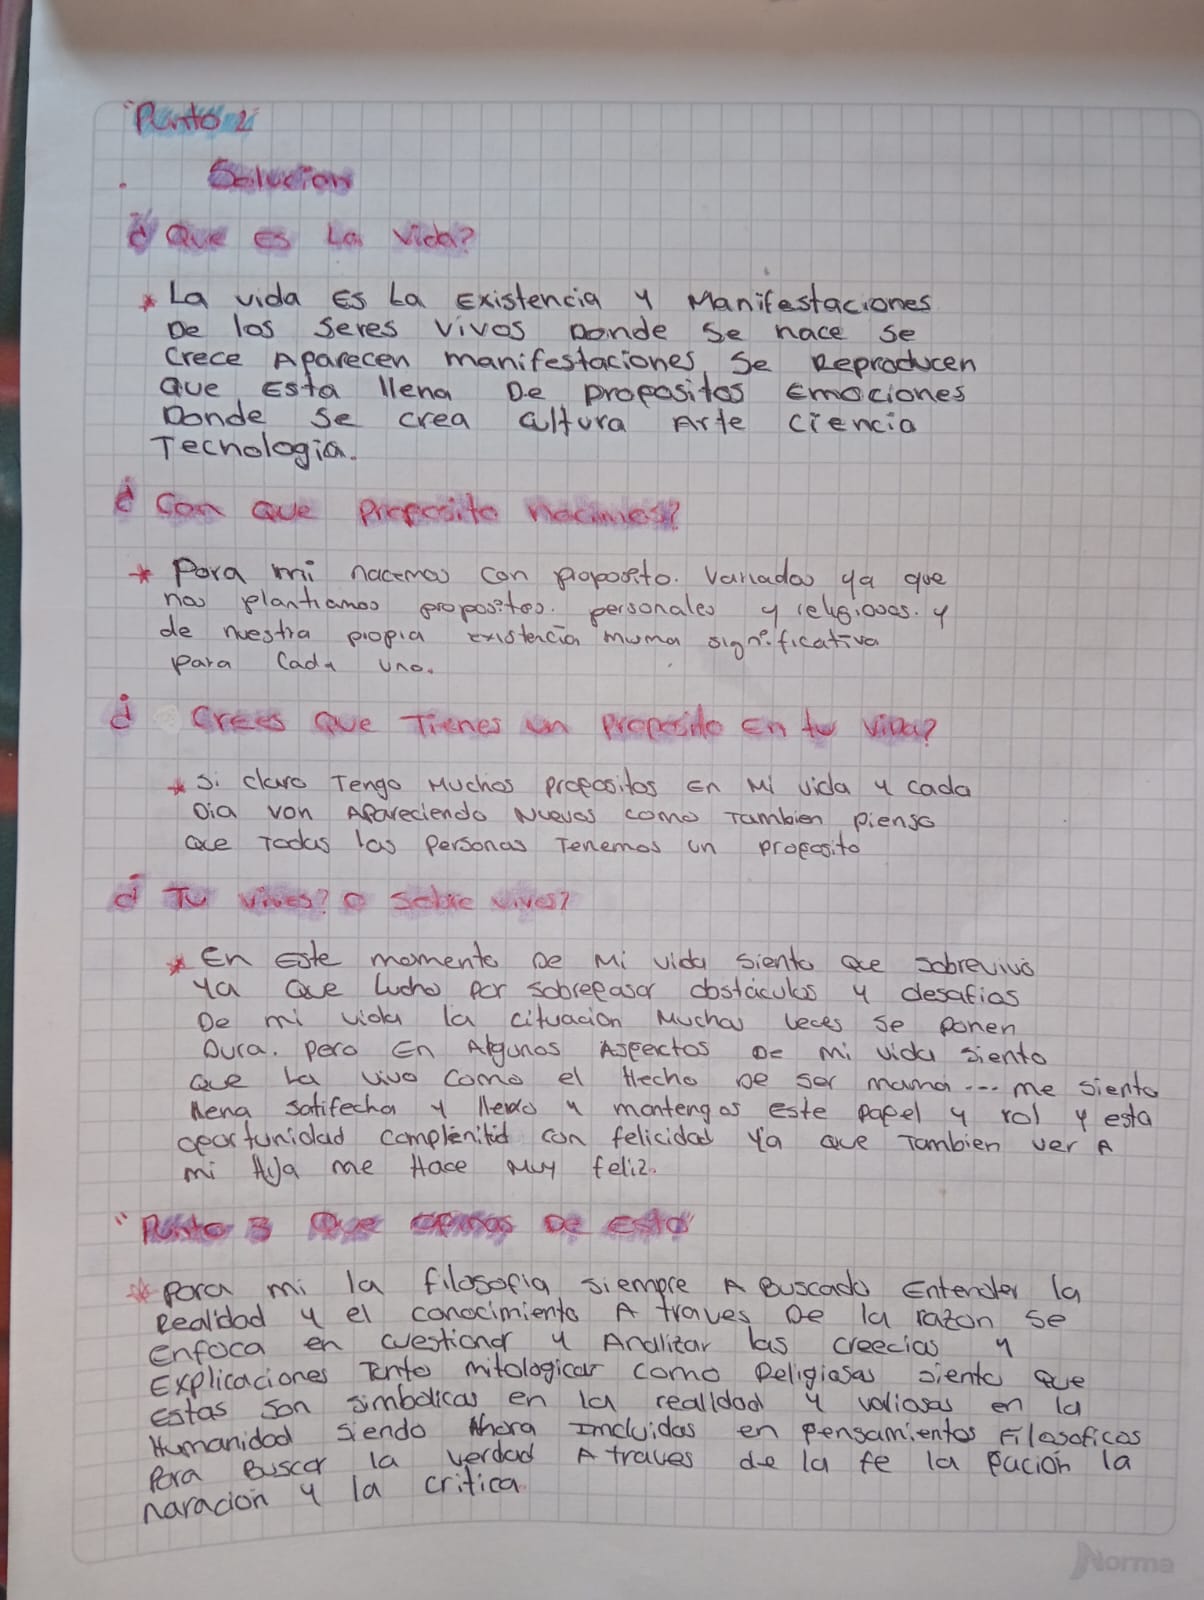 "Punto 2
Solucion
¿ Que es La vida?
* La vida Es La Existencia y Manifestaciones
De los Seres vivos Donde Se nace se
Crece Aparecen manifestaciones, Se Reproducen
Que Esta llena De propositos Emociones
Donde Se crea Cultura Arte Ciencia
Tecnologia.
¿ Con Que Proposito Nacimos?
* Para mi nacemos con proposito. Variados ya que
nos plantiamos propositos. personales y religiosos. y
de nuestra propia existencia muma significativa
para Cada uno.
¿ Crees Que Tienes un Proposito En tu Vida?
* Si claro Tengo Muchos Propositos En Mi vida y cada
Dia von Apareciendo Nuevos como Tambien pienso
Que Todas las Personas Tenemos un proposito
¿ Tu vives? O Sobre vives?
* En Este momento De Mi vida Siento Que Sobrevivo
Ya Que Lucho por Sobrepasar obstáculos y desafios
De mi vida la cituacion Muchas veces Se ponen
Dura. Pero En Algunos Aspectos De mi vida Siento
Que La vivo Como el Hecho De ser mama... me Siento
llena Satifecha y llevo y mantengos este papel y rol y esta
oportunidad con felicidad Ya Que Tambien ver A
mi Hija me Hace Muy feliz.
"Punto 3 Que opinas De Esto"
* Para mi la filosofia Siempre A Buscado Entender la
Realidad y el conocimiento A traves De la razon Se
Enfoca en cuestionar y Analizar las creecias y
Explicaciones Tanto mitologicar como Religiosas Siento Que
Estas Son Simbolicas en la realidad y valiosas en la
Humanidad Siendo Ahora Incluidas en Pensamientos Filosoficos
Para Buscar la verdad A traves de la fe la pacion la
naracion y la critica.
Norma